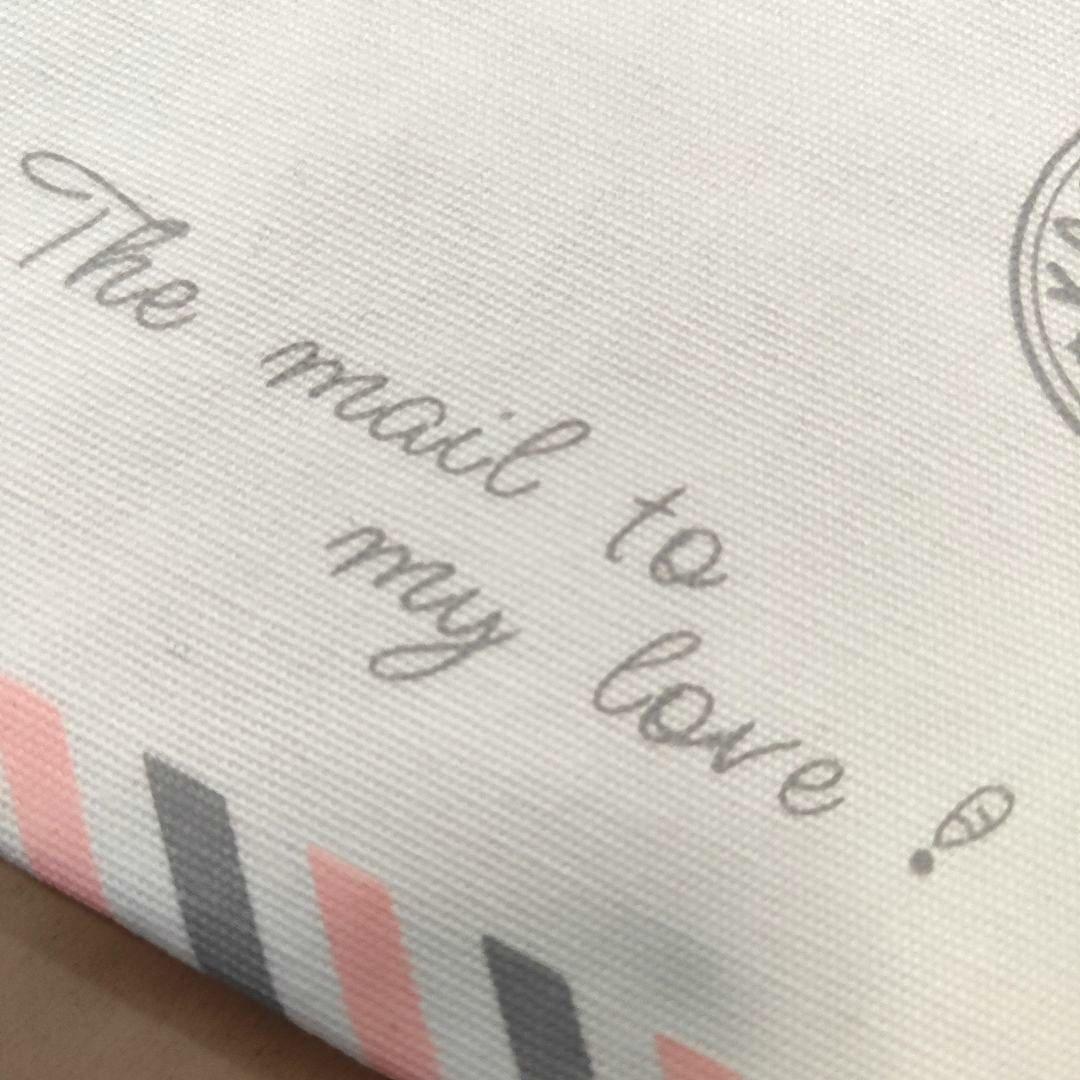 The mail to
my love !